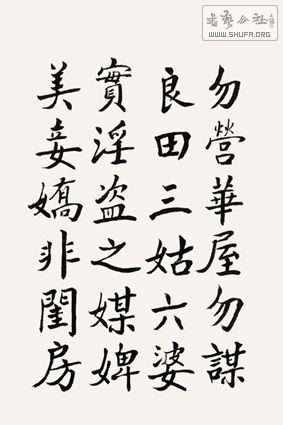 書藝公社
WWW.SHUFA.ORG
勿營華屋勿謀
良田三姑六婆
實淫盜之媒婢
美妾嬌非閨房